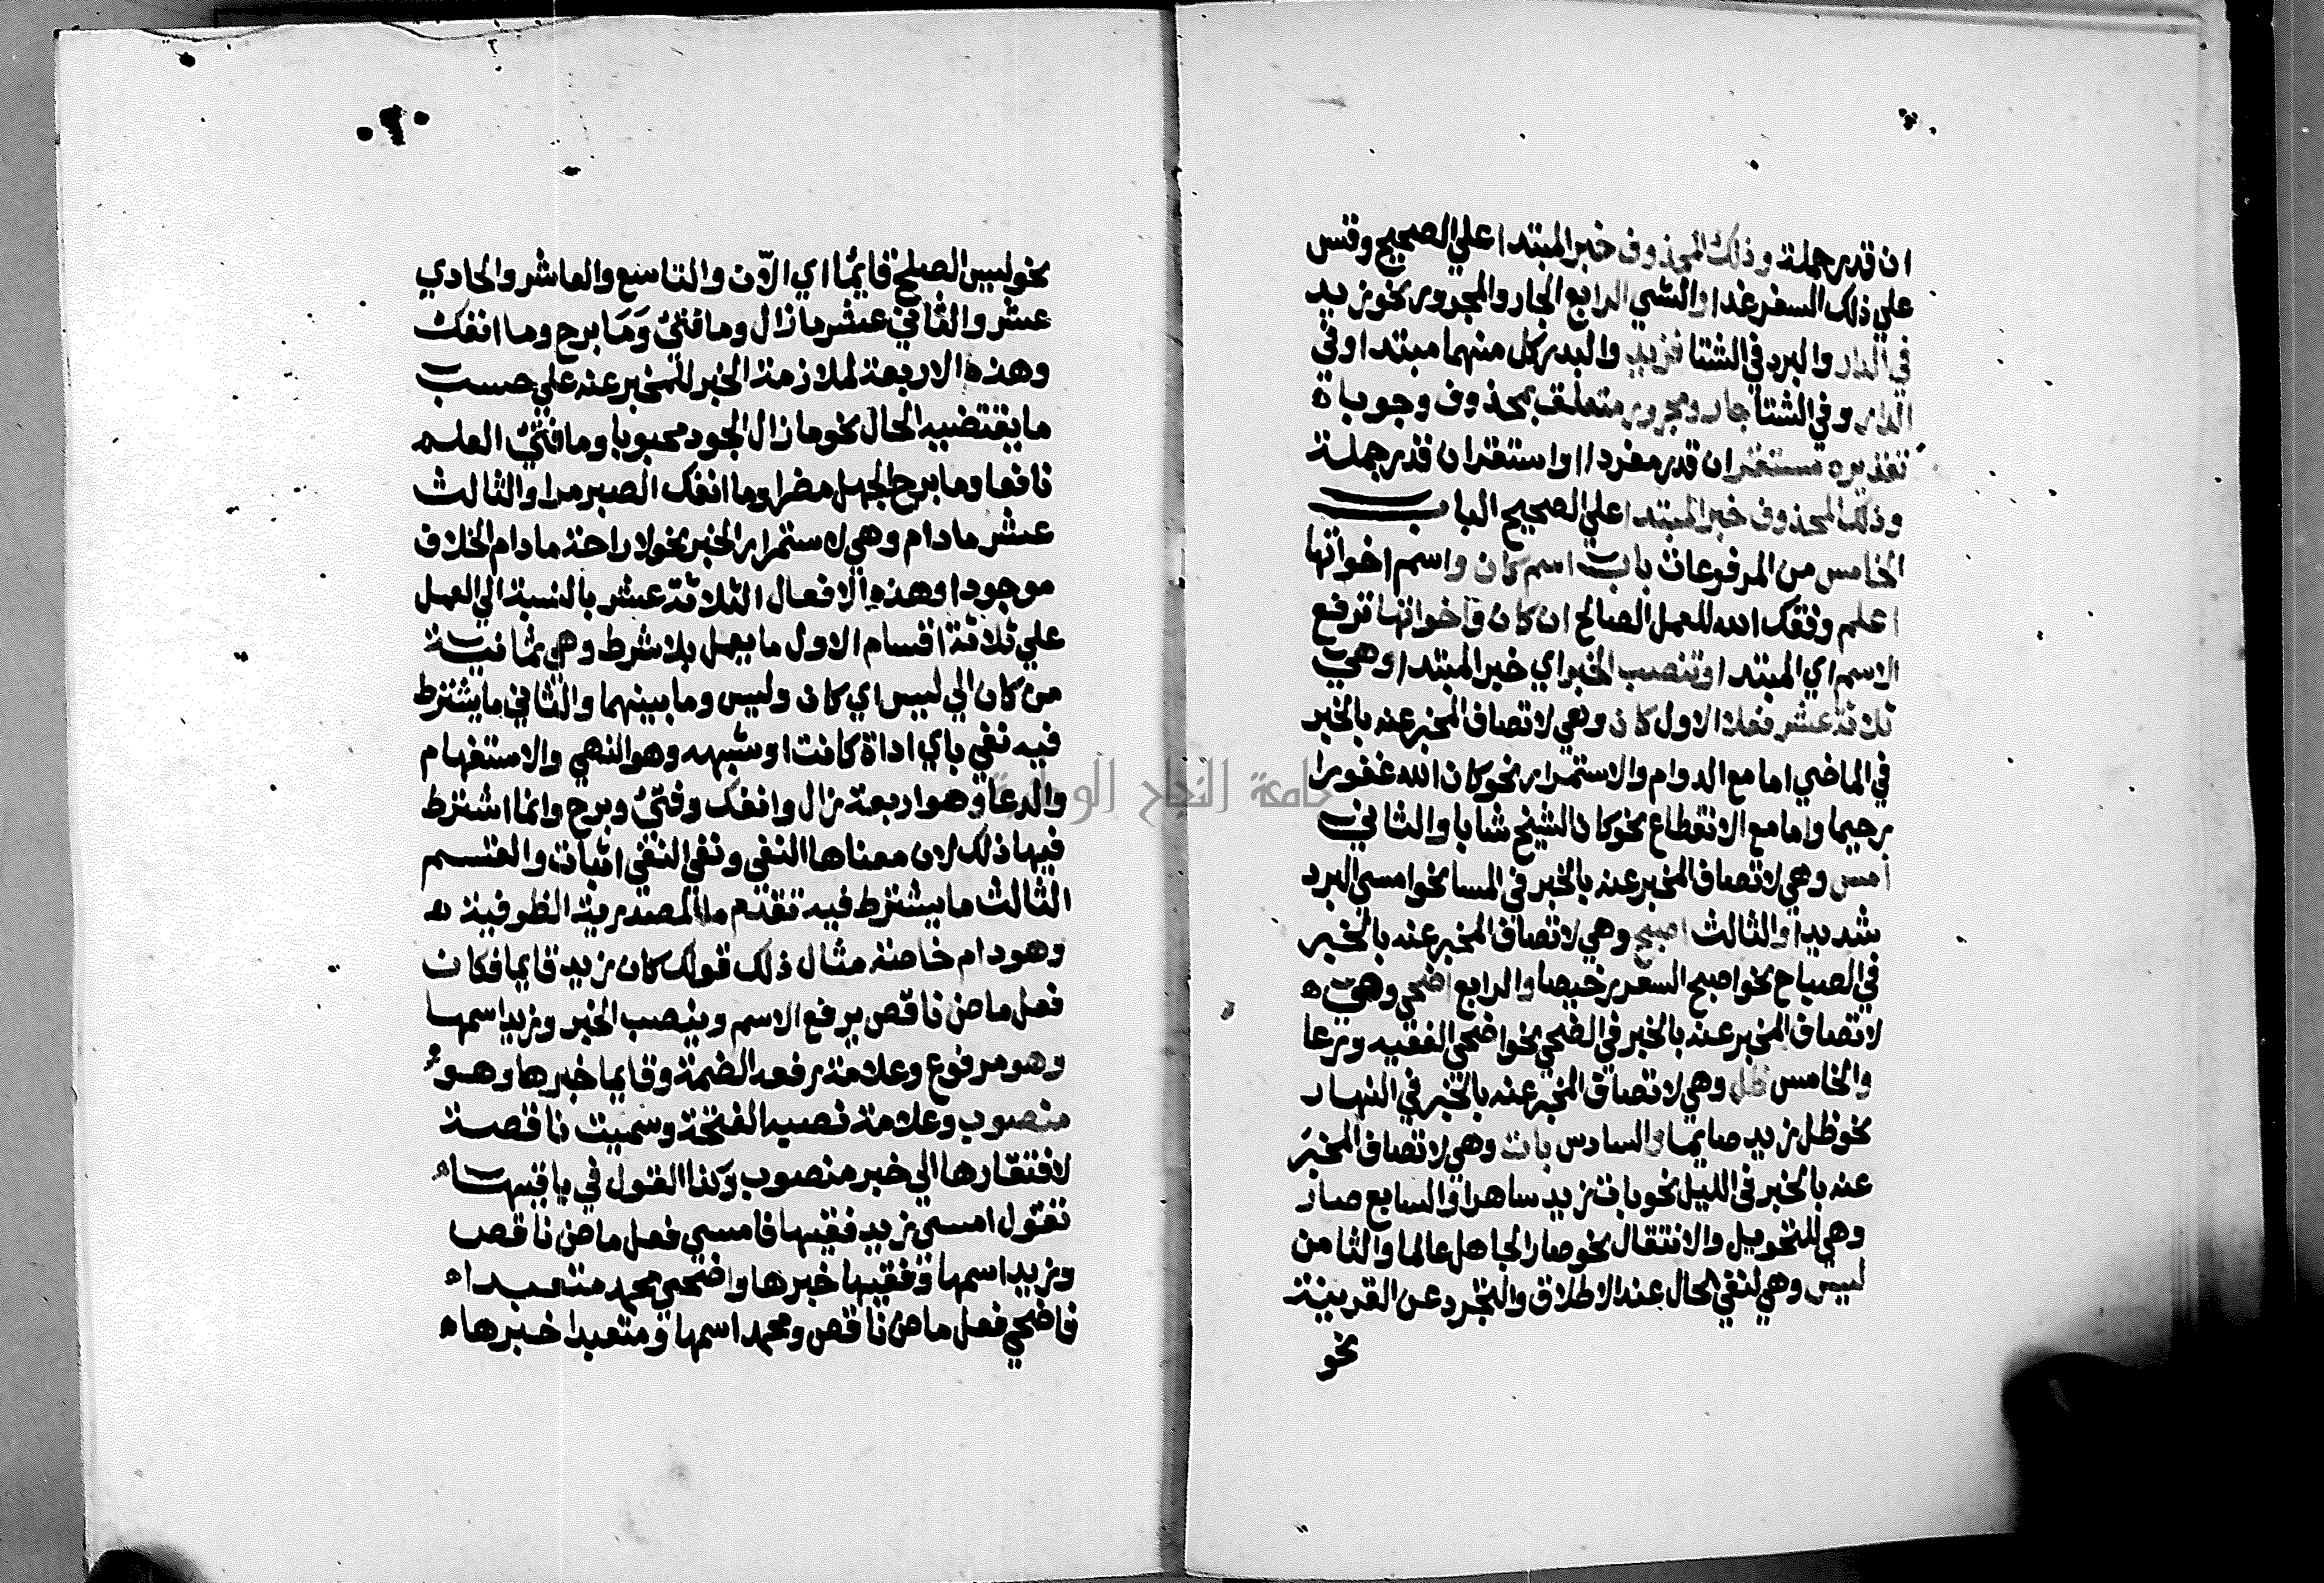 ان قدر جملة وذلك المحذوف خبر المبتدا علي الصحيح وقس
علي ذلك السفر غدا والشي الرابع الجار والمجرور نحو زيد
في الدار والبرد في الشتا فزيد والبدر كل منهما مبتدا وفي
الدار وفي الشتا جار ومجرور متعلق بمحذوف وجوبا ه
تقديره مستقر ان قدر مفردا او استقر ان قدر جملة
وذلك المحذوف خبر المبتدا علي الصحيح الباب
الخامس من المرفوعات باب اسم كان واسم اخواتها
اعلم وفقك الله للعمل الصالح ان كان واخواتها ترفع
الاسم اي المبتدا وتنصب الخبر اي خبر المبتدا وهي
ثلاثة عشر فعلا الاول كان وهي لاتصاف المخبر عنه بالخبر
في الماضي اما مع الدوام والاستمرار نحو كان الله غفورا
رحيما واما مع الانقطاع نحو كان الشيخ شابا والثاني
امس وهي لاتصاف المخبر عنه بالخبر في المسا نحو امسي البرد
شديدا والثالث اصبح وهي لاتصاف المخبر عنه بالخبر
في الصباح نحو اصبح السعر رخيصا والرابع اضحي وهي ه
لاتصاف المخبر عنه بالخبر في الضحي نحو اضحي الفقيه ورعا
والخامس ظل وهي لاتصاف المخبر عنه بالخبر في النهار
نحو ظل زيد صايما والسادس بات وهي لاتصاف المخبر
عنه بالخبر في الليل نحو بات زيد ساهرا والسابع صار
وهي للتحويل والانتقال نحو صار الجاهل عالما والثامن
ليس وهي لنفي الحال عند الاطلاق والتجرد عن القرينة
نحو
نحو ليس الصلح قايما اي الآن والتاسع والعاشر والحادي
عشر والثاني عشر ما زال وما فتئ وما برح وما انفك
وهذه الاربعة لملازمة الخبر للمخبر عنه علي حسب
ما يقتضيه الحال نحو ما زال الجود محبوبا وما فتئ العلم
نافعا وما برح الجهل مضرا وما انفك الصبر مرا والثالث
عشر ما دام وهي لاستمرار الخبر نحو لا راحة ما دام الخلاف
موجودا وهذه الافعال الثلاثة عشر بالنسبة الي العمل
علي ثلاثة اقسام الاول ما يعمل بلا شرط وهي ثمانية
من كان الي ليس اي كان وليس وما بينهما والثاني ما يشترط
فيه نفي باي اداة كانت او شبهه وهو النهي والاستفهام
والدعا وهو اربعة زال وانفك وفتئ وبرح وانما اشترط
فيها ذلك لان معناها النفي ونفي النفي اثبات والقسم
الثالث ما يشترط فيه تقدم ما المصدرية الظرفية ه
وهو دام خاصة مثال ذلك قولك كان زيد قايما فكان
فعل ماض ناقص يرفع الاسم وينصب الخبر وزيد اسمها
وهو مرفوع وعلامة رفعه الضمة وقايما خبرها وهو
منصوب وعلامة نصبه الفتحة وسميت ناقصة
لافتقارها الي خبر منصوب وكذا القول في باقيها ه
تقول امسي زيد فقيها فامسي فعل ماض ناقص
وزيد اسمها وفقيها خبرها واضحي محمد متعبدا ه
فاضحي فعل ماض ناقص ومحمد اسمها ومتعبدا خبرها ه
جامعة النجاح الوطنية